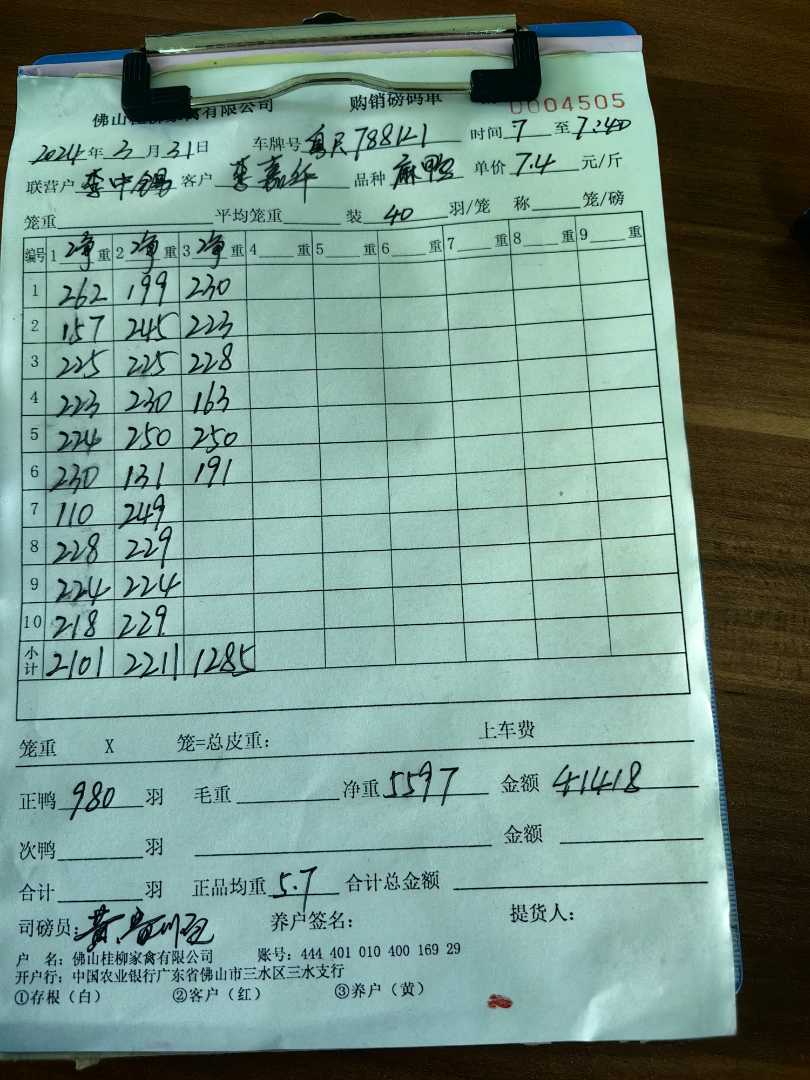 佛山桂柳家禽有限公司 购销磅码单 0004505
2024年3月31日 车牌号 时间 7 至 7:40
联营户 李中锡 客户 品种 麻鸭 单价 7.4 元/斤
笼重 平均笼重 装 40 羽/笼 称 笼/磅
编号 1 净重 2 净重 3 净重 4 重 5 重 6 重 7 重 8 重 9 重
1 262 199 230
2 157 245 223
3 225 225 228
4 223 230 163
5 224 250 250
6 230 131 191
7 110 249
8 228 229
9 224 224
10 218 229
小计 2101 2211 1285
笼重 X 笼=总皮重: 上车费
正鸭 980 羽 毛重 净重 5597 金额 41418
次鸭 羽 金额
合计 羽 正品均重 5.7 合计总金额
司磅员: 养户签名: 提货人:
户 名: 佛山桂柳家禽有限公司 账号: 444 401 010 400 169 29
开户行: 中国农业银行广东省佛山市三水区三水支行
①存根（白） ②客户（红） ③养户（黄）